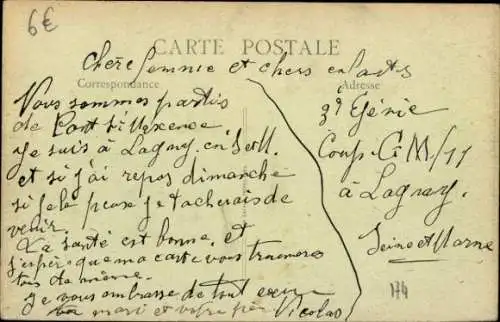 6€
CARTE POSTALE
chère femme et chers enfants
Correspondance
Adresse
Vous sommes partis
de Pont St Maxence
je suis à Lagny en S et M.
et si j'ai repos dimanche
si je le peux je tacherais de
venir.
La santé est bonne et
j'espère que ma carte vous trouveras
tous de même.
Je vous embrasse de tout coeur
ton mari et votre père Nicolas
3è Génie
Comp. C M/11
à Lagny.
Seine et Marne
174